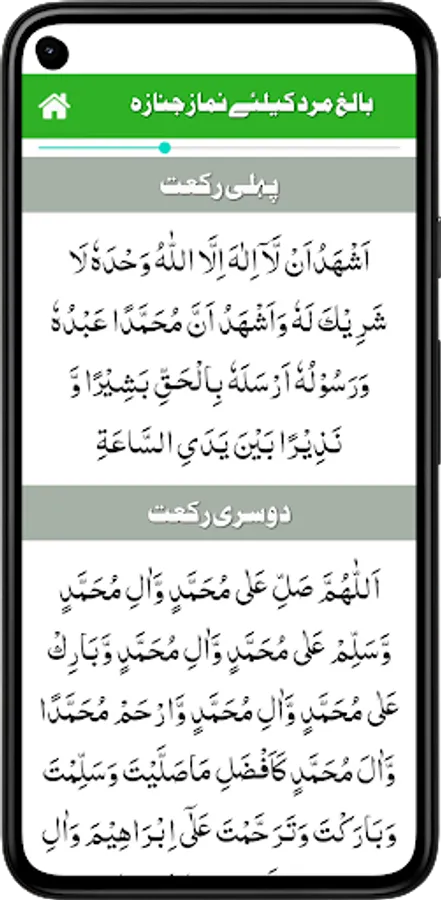 بالغ مرد کیلئے نماز جنازہ
پہلی رکعت
اَشْهَدُ اَنْ لَّاۤ اِلٰهَ اِلَّا اللّٰهُ وَحْدَهٗ لَا
شَرِيْكَ لَهٗ وَاَشْهَدُ اَنَّ مُحَمَّدًا عَبْدُهٗ
وَرَسُوْلُهٗ اَرْسَلَهٗ بِالْحَقِّ بَشِيْرًا وَّ
نَذِيْرًا بَيْنَ يَدَیِ السَّاعَةِ
دوسری رکعت
اَللّٰهُمَّ صَلِّ عَلٰى مُحَمَّدٍ وَّاٰلِ مُحَمَّدٍ
وَّسَلِّمْ عَلٰى مُحَمَّدٍ وَّاٰلِ مُحَمَّدٍ وَّبَارِكْ
عَلٰى مُحَمَّدٍ وَّاٰلِ مُحَمَّدٍ وَّارْحَمْ مُحَمَّدًا
وَّاٰلَ مُحَمَّدٍ كَاَفْضَلِ مَاصَلَّيْتَ وَسَلَّمْتَ
وَبَارَكْتَ وَتَرَحَّمْتَ عَلٰٓى اِبْرَاهِيْمَ وَاٰلِ